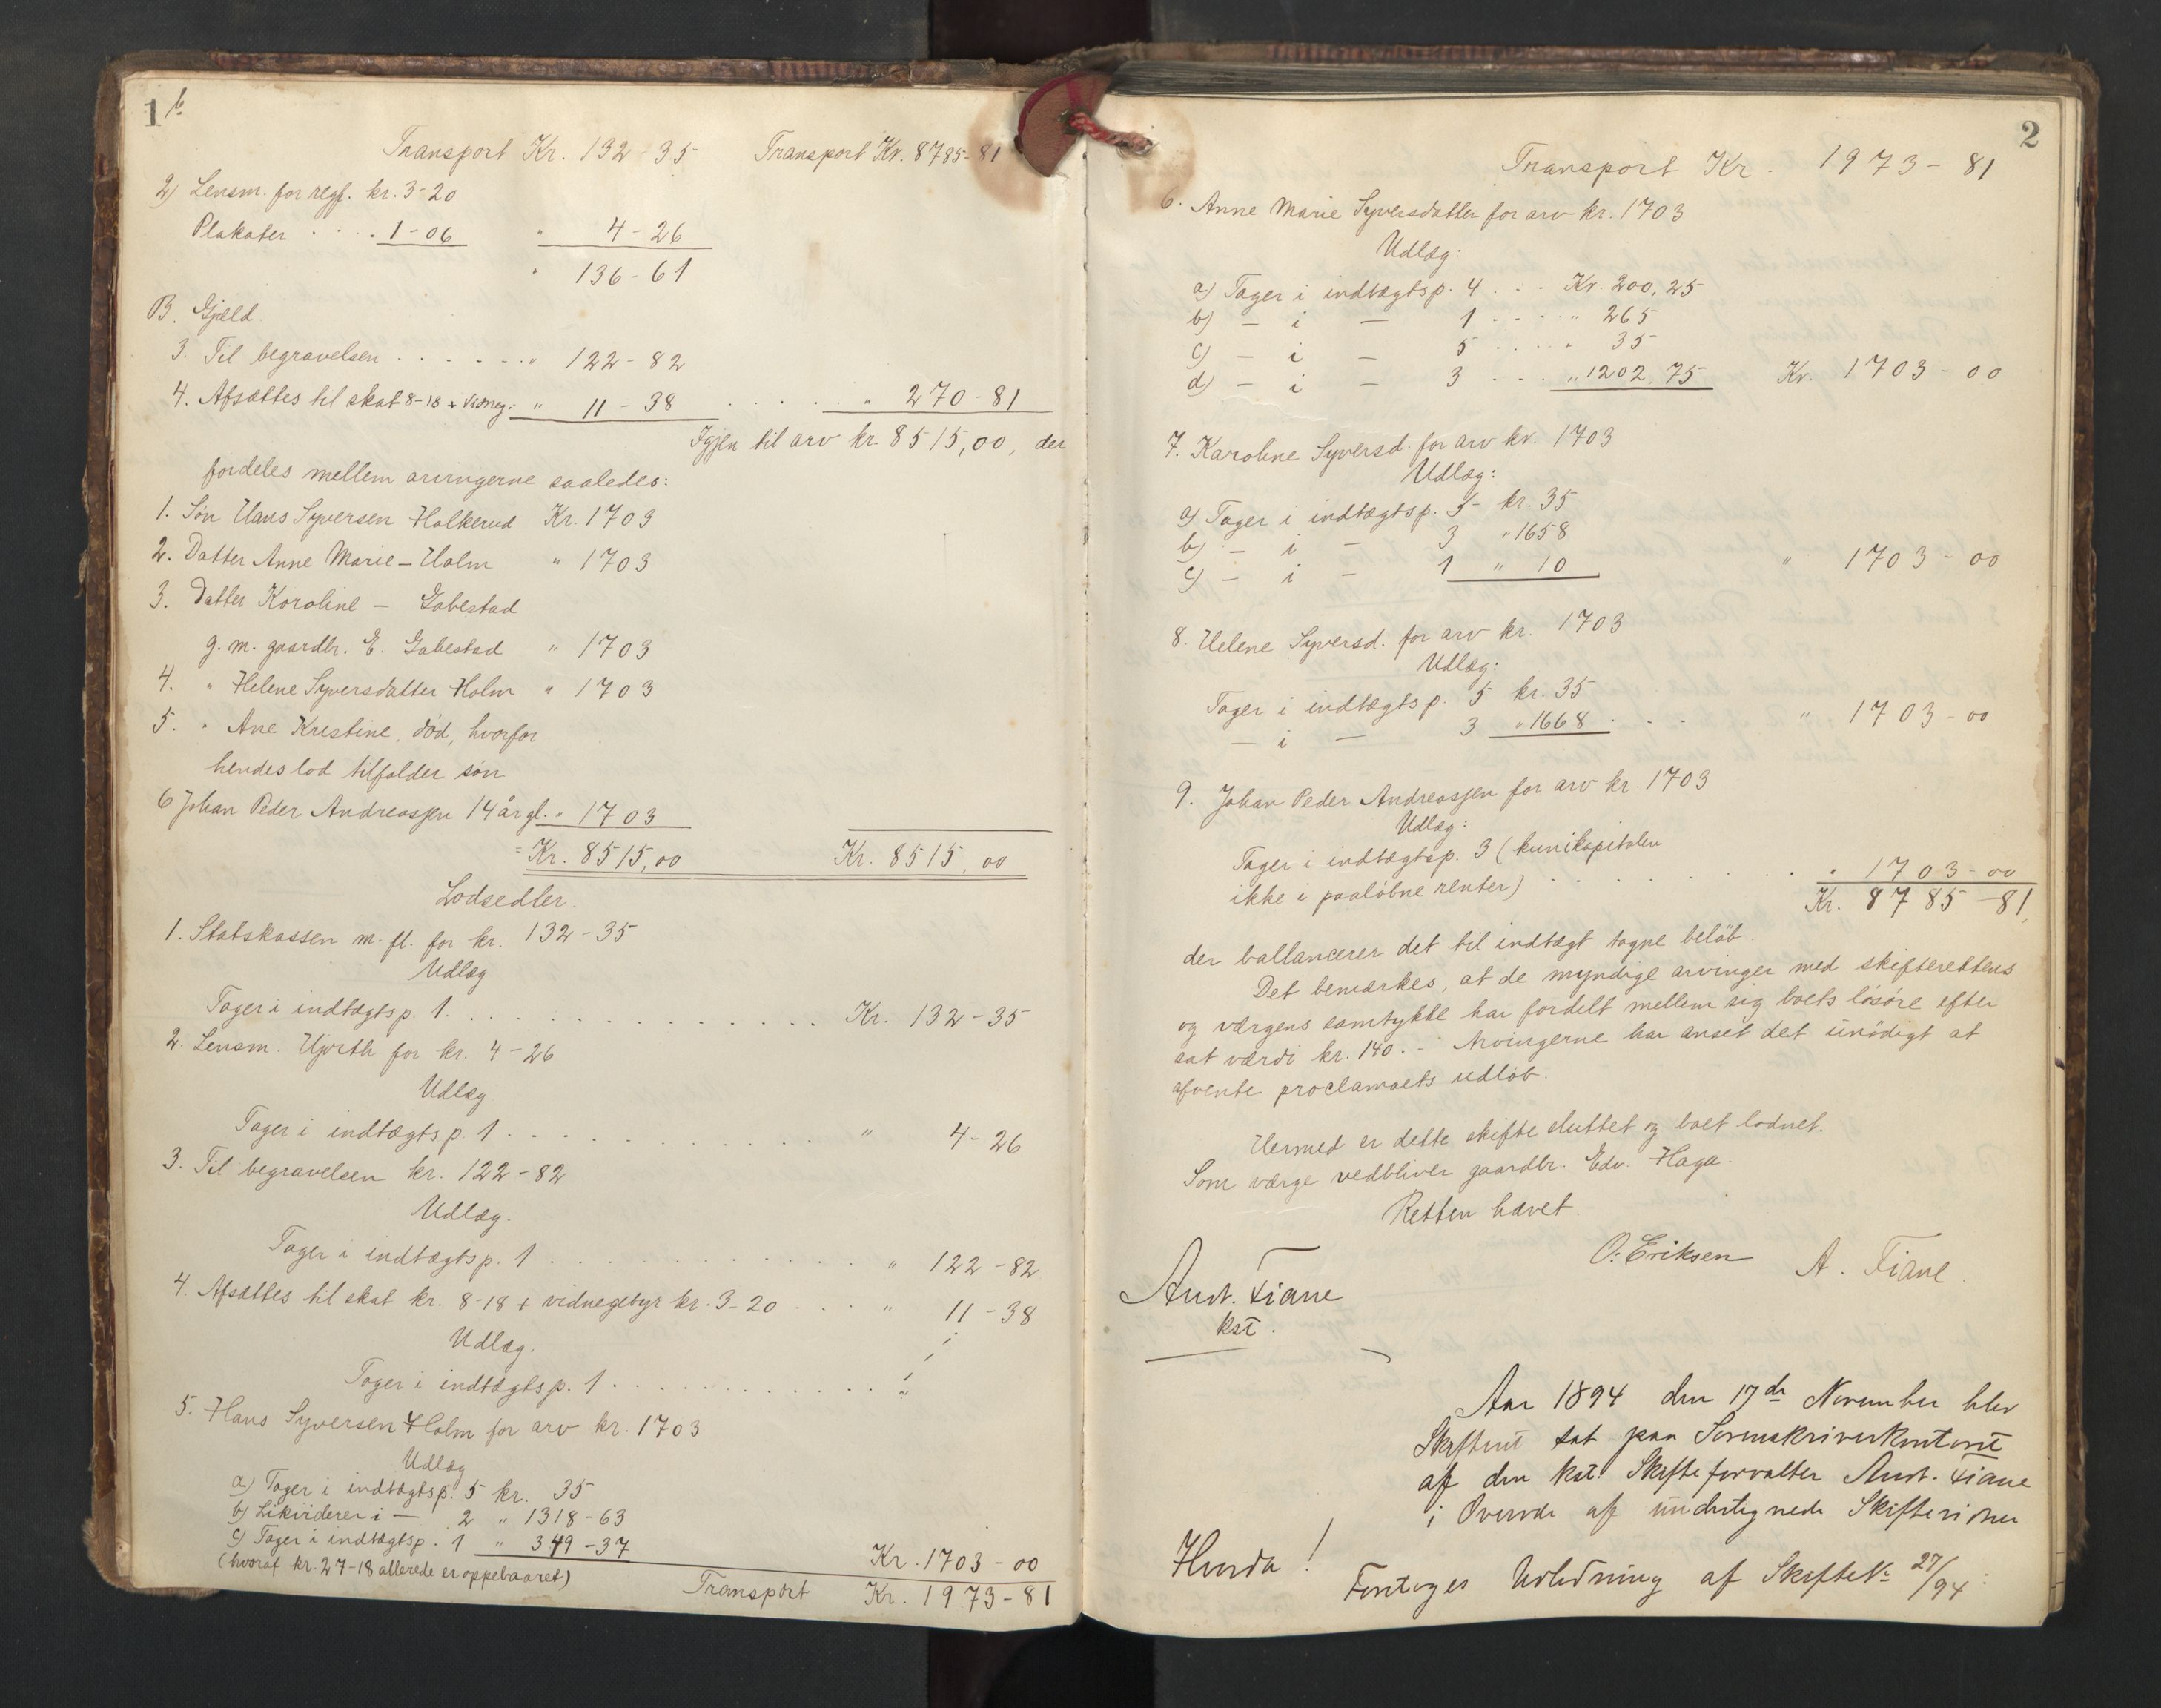 1 b
Transport Kr. 132-35 Transport Kr. 8785-81
2) Lensm. for regf. kr. 3-20
Plakater . . . . 1-06 " 4-26
" 136-61
B. Gjæld.
3. Til begravelsen . . . . . . . " 122-82
4. Afsættes til skat 8-18 + vidneg. " 11-38 . . . . . " 270-81
Igjen til arv kr. 8515,00, der
fordeles mellem arvingerne saaledes:
1. Søn Hans Syversen Holkerud Kr. 1703
2. Datter Anne Marie - Holm " 1703
3. Datter Karoline - Gabestad
g. m. gaardbr. E. Gabestad " 1703
4. " Helene Syversdatter Holm " 1703
5. " Ane Kristine, død, hvorfor
hendes lod tilfalder søn
6 Johan Peder Andreassen 14 år gl. " 1703
Kr. 8515,00 Kr. 8515,00
Lodsedler.
1. Statskassen m. fl. for kr. 132-35
Udlæg
Tager i indtægtsp. 1. . . . . . . . . . . . . . . . Kr. 132-35
2. Lensm. Hjorth for kr. 4-26
Udlæg
Tager i indtægtsp. 1 . . . . . . . . . . . . . " 4-26
3. Til begravelsen kr. 122-82
Udlæg.
Tager i indtægtsp. 1 . . . . . . . . . . . . . " 122-82
4. Afsættes til skat kr. 8-18 + vidnegebyr kr. 3-20 . . . . " 11-38
Udlæg.
Tager i indtægtsp. 1 . . . . . . . . . . . .
5. Hans Syversen Holm for arv kr. 1703
Udlæg
a) Tager i indtægtsp. 5 kr. 35
b) Likviderer i — 2 " 1318-63
c) Tager i indtægtsp. 1 " 349-37
Kr. 1703-00
(hvoraf kr. 27-18 allerede er oppebaaret)
Transport Kr. 1973-81
2
Transport Kr. 1973-81
6. Anne Marie Syversdatter for arv kr. 1703
Udlæg:
a) Tager i indtægtsp. 4 . . . Kr. 200,25
b) — i — 1 . . . . " 265
c) — i — 5 . . . . " 35
d) — i — 3 . . . " 1202,75 Kr. 1703-00
7. Karoline Syversd. for arv kr. 1703
Udlæg:
a) Tager i indtægtsp. 5 kr. 35
b) — i — 3 " 1658
c) — i — 1 " 10 " 1703-00
8. Helene Syversd. for arv kr. 1703
Udlæg:
Tager i indtægtsp. 5 kr. 35
— i — 3 " 1668 . . . " 1703-00
9. Johan Peder Andreassen for arv kr. 1703
Udlæg:
Tager i indtægtsp. 3 (kun i kapitalen
ikke i paaløbne renter) . . . . . . . . . . " 1703-00
Kr. 8785-81,
der ballancerer det til indtægt tagne beløb.
Det bemærkes, at de myndige arvinger med skifterettens
og værgens samtykke har fordelt mellem sig boets løsøre efter
sat værdi kr. 140. - Arvingerne har anset det unødigt at
afvente proclamaets udløb.
Hermed er dette skifte sluttet og boet lodnet.
Som værge vedbliver gaardbr. Edv. Haga.
Retten hævet.
O. Eriksen A. Fiane.
Aust. Fiane
kst.
Aar 1894 den 17de November blev
Skifteret sat paa Sorenskriverkontoret
af den kst. Skifteforvalter Aust. Fiane
i Overvær af undertegnede Skiftevidner
Hvorda!
Foretoges Udlodning af Skifte No 27/94: